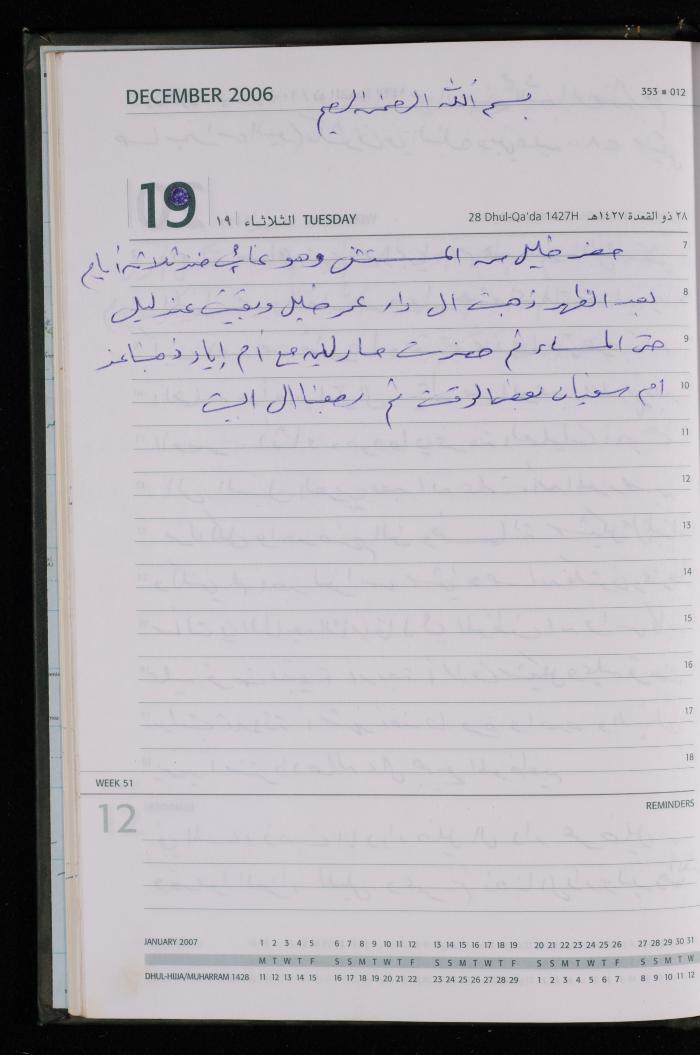 DECEMBER 2006
353 ■ 012
بسم الله الرحمن الرحيم
19
١٩ الثلاثاء TUESDAY
28 Dhul-Qa'da 1427H ٢٨ ذو القعدة ١٤٢٧هـ
7
حضر خليل من المستشفى وهو غائب منذ ثلاثة أيام
8
بعد الظهر ذهبت الى دار عمر خليل وبقيت عند ليلى
9
حتى المساء ثم حضرت مع أم إياد
10
ام سفيان بعض الوقت ثم رجعنا الى البيت
11
12
13
14
15
16
17
18
WEEK 51
12
REMINDERS
JANUARY 2007 1 2 3 4 5 6 7 8 9 10 11 12 13 14 15 16 17 18 19 20 21 22 23 24 25 26 27 28 29 30 31
M T W T F S S M T W T F S S M T W T F S S M T W T F S S M T W
DHUL-HIJJA/MUHARRAM 1428 11 12 13 14 15 16 17 18 19 20 21 22 23 24 25 26 27 28 29 1 2 3 4 5 6 7 8 9 10 11 12